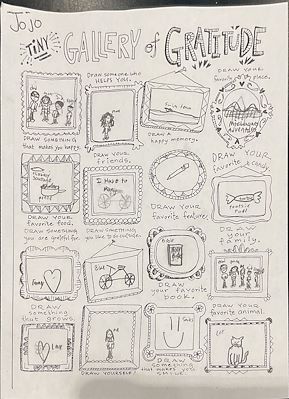 JoJo
TINY GALLERY of GRATITUDE
DRAW SOMETHING
that makes you happy.
DRAW someone who
HELPS YOU.
DRAW A
happy memory.
DRAW YOUR
favorite place.
DRAW YOUR
favorite food.
DRAW YOUR
friends.
I Have to
Many
DRAW YOUR
favorite feature.
DRAW YOUR
favorite candy.
tootsie
roll
DRAW SOMETHING
you are grateful for.
family
DRAW SOMETHING
you like to do outside.
Blue
DRAW
your favorite
book.
DRAW
your
family.
DRAW
something
that grows.
Love
DRAW YOURSELF!
me
DRAW
something that
makes you
SMILE.
DRAW YOUR
favorite animal.
Cat